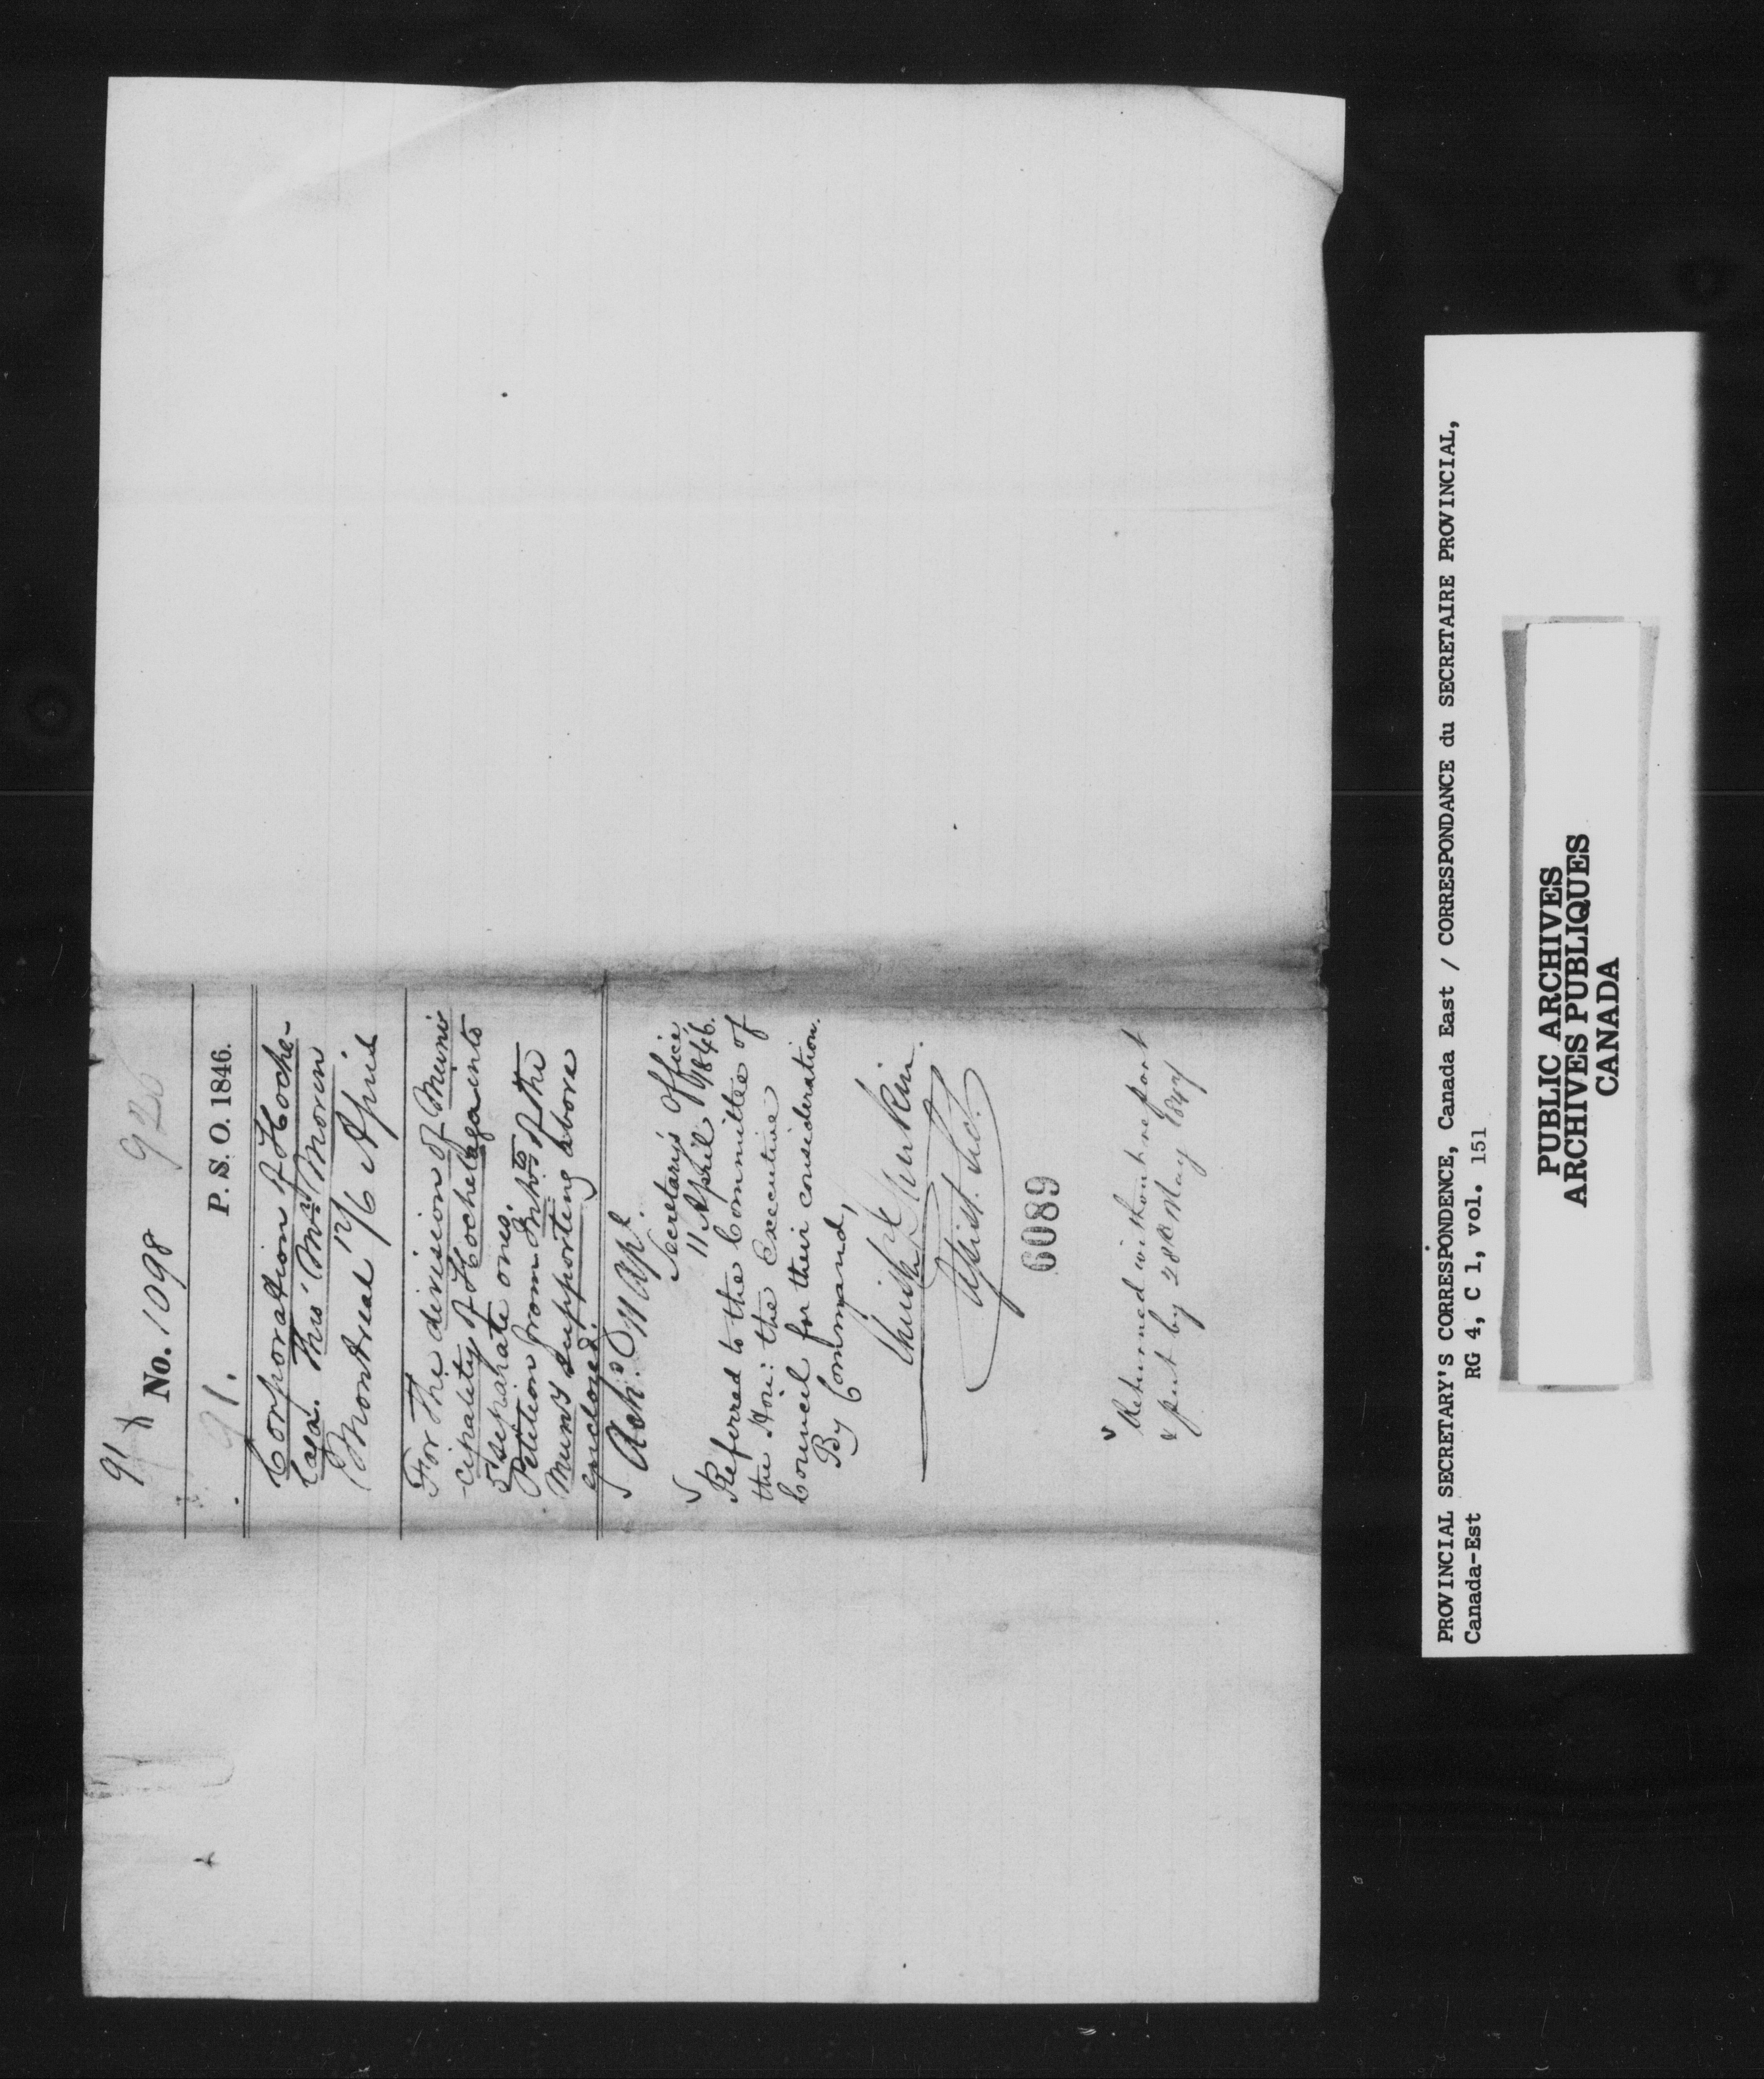 91 X
No. 1098
P. S. O. 1846.
91.
Corporation of Hoche-
laga. Thro' Mr. Morin
Montreal 6 April
For the division of Munici
cipality of Hochelaga into
5 separate ones.
Petition from Inhts. of the
Muny supporting above
enclosed.
Ackd. 11 Apl.
Secretary's Office
11 April 1846.
Referred to the Committee of
the Hon: the Executive
Council for their consideration.
By Command,
Christr. Dunkin.
Assist. Sec.
6089
Returned without report
& put by 28th May 1847
PROVINCIAL SECRETARY'S CORRESPONDENCE, Canada East / CORRESPONDANCE du SECRETAIRE PROVINCIAL,
Canada-Est RG 4, C 1, vol. 151
PUBLIC ARCHIVES
ARCHIVES PUBLIQUES
CANADA